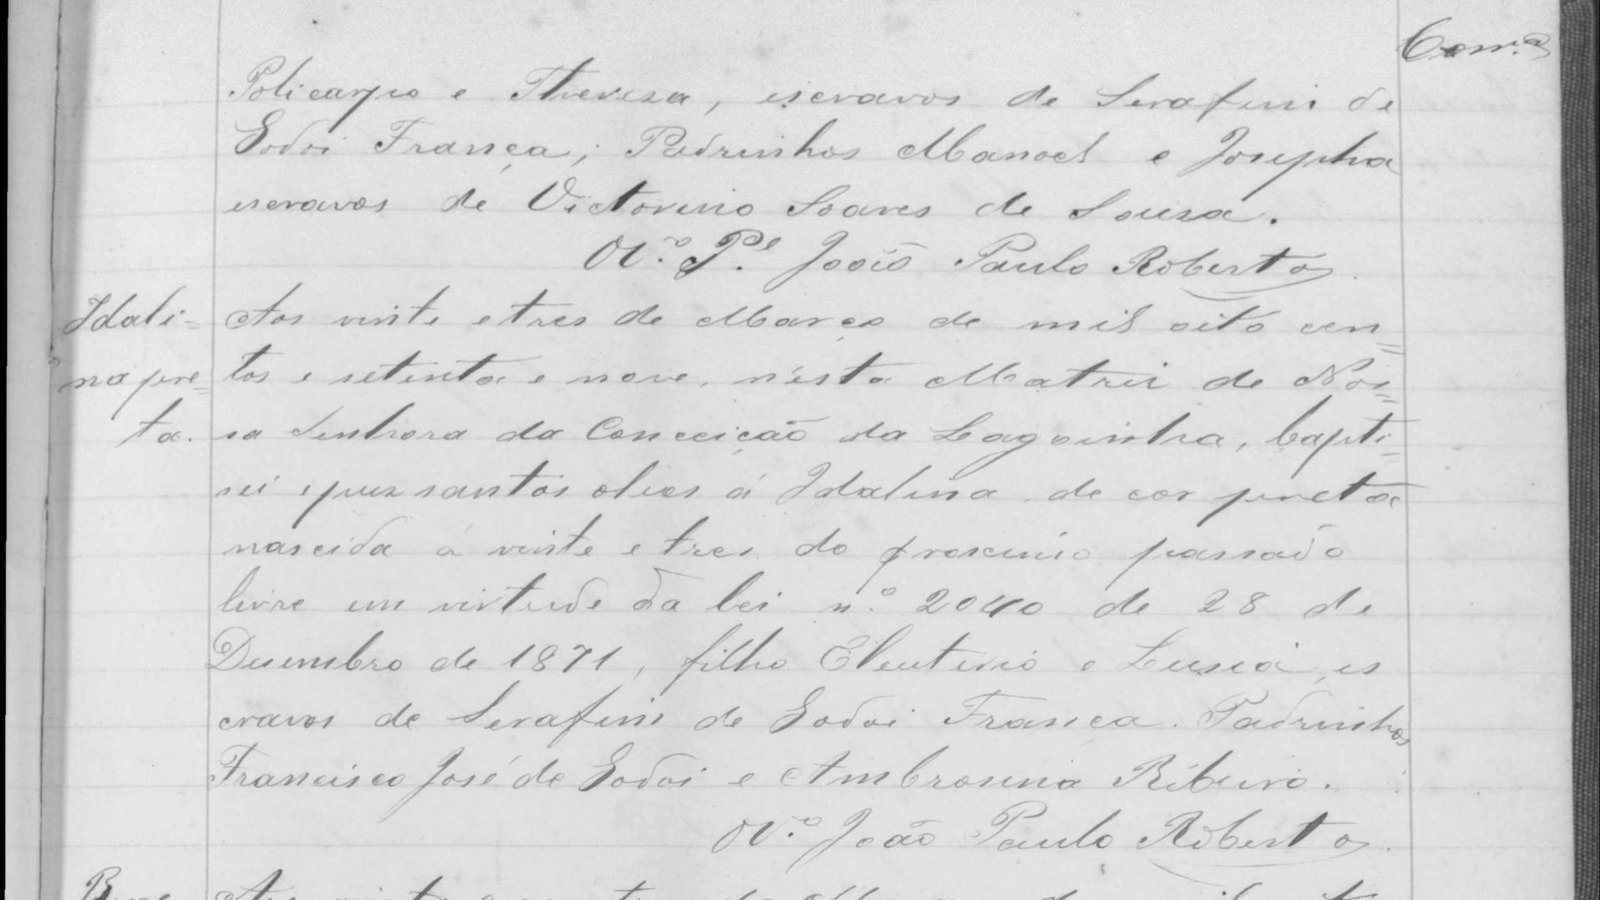 Policarpo e Thereza, escravos de Serafim de
Godoi França; Padrinhos Manoel e Josepha
escravos de Victorino Soares de Sousa.
O V.º P.e João Paulo Roberto
Idali= Aos vinte e tres de Março de mil oito cen=
na pre= tos e setenta e nove, n'esta Matriz de Nos=
ta. sa Senhora da Conceição da Lagoinha, bapti=
sei e puz santos olios á Idalina de cor preta
nascida á vinte e tres do proximo passado
livre em virtude da lei n.º 2040 de 28 de
Desembro de 1871, filho Eleuterio e Lusia, es
cravos de Serafim de Godoi França. Padrinhos
Francisco José de Godoi e Ambrosina Ribeiro.
O V.º João Paulo Roberto